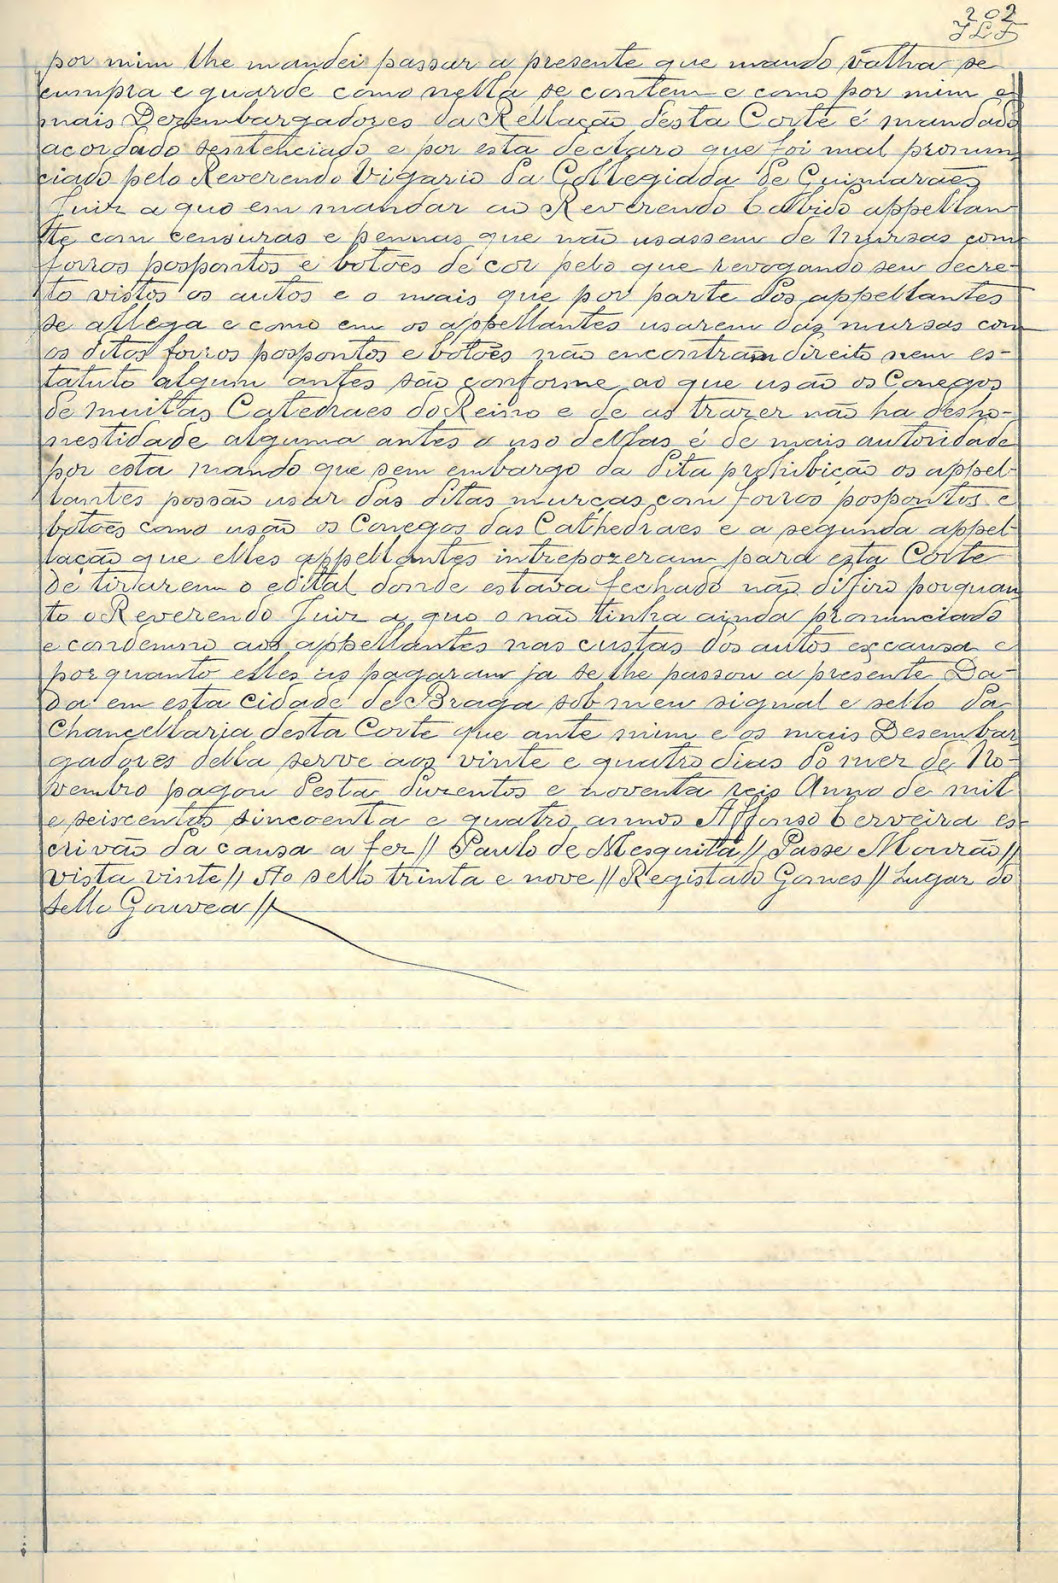 202
JLF
por mim lhe mandei passar a presente que mando valha se
cumpra e guarde como nella se contem e como por mim e
mais Dezembargadores da Rellação desta Corte é mandado
acordado sentenciado e por esta declaro que foi mal pronun-
ciado pelo Reverendo Vigario da Collegiada de Guimarães
Juiz a quo em mandar ao Reverendo Cabido appellan
te com censuras e pennas que não usassem de Mursas com
forros pospontos e botões de cor pelo que revogando seu decre-
to vistos os autos e o mais que por parte dos appellantes
se allega e como em os appellantes usarem das mursas com
os ditos forros pospontos e botões não encontram direito nem es-
tatuto algum antes são conforme ao que usão os Conegos
de muitas Catedraes do Reino e de as trazer não ha desho-
nestidade alguma antes o uso dellas é de mais autoridade
por esta mando que sem embargo da dita prohibição os appel-
lantes possão usar das ditas murças com forros pospontos e
botões como usão os Conegos das Cathedraes e a segunda appel
lação que elles appellantes intrepozeram para esta Corte
de tirarem o edital donde estava fechado não difiro porquan
to o Reverendo Juiz a quo o não tinha ainda pronunciado
e condemno aos appellantes nas custas dos autos ex causa e
porquanto elles as pagaram ja se lhe passou a presente Da-
da em esta Cidade de Braga sob meu signal e sello da
Chancellaria desta Corte que ante mim e os mais Desembar
gadores della serve aos vinte e quatro dias do mez de No-
vembro pagou desta duzentos e noventa reis Anno de mil
e seiscentos sincoenta e quatro annos Affonso Cerveira es-
crivão da causa a fez // Paulo de Mesquita // Passe Mourão //
vista vinte // Ao sello trinta e nove // Registado Gomes // Lugar do
sello Gouvea //